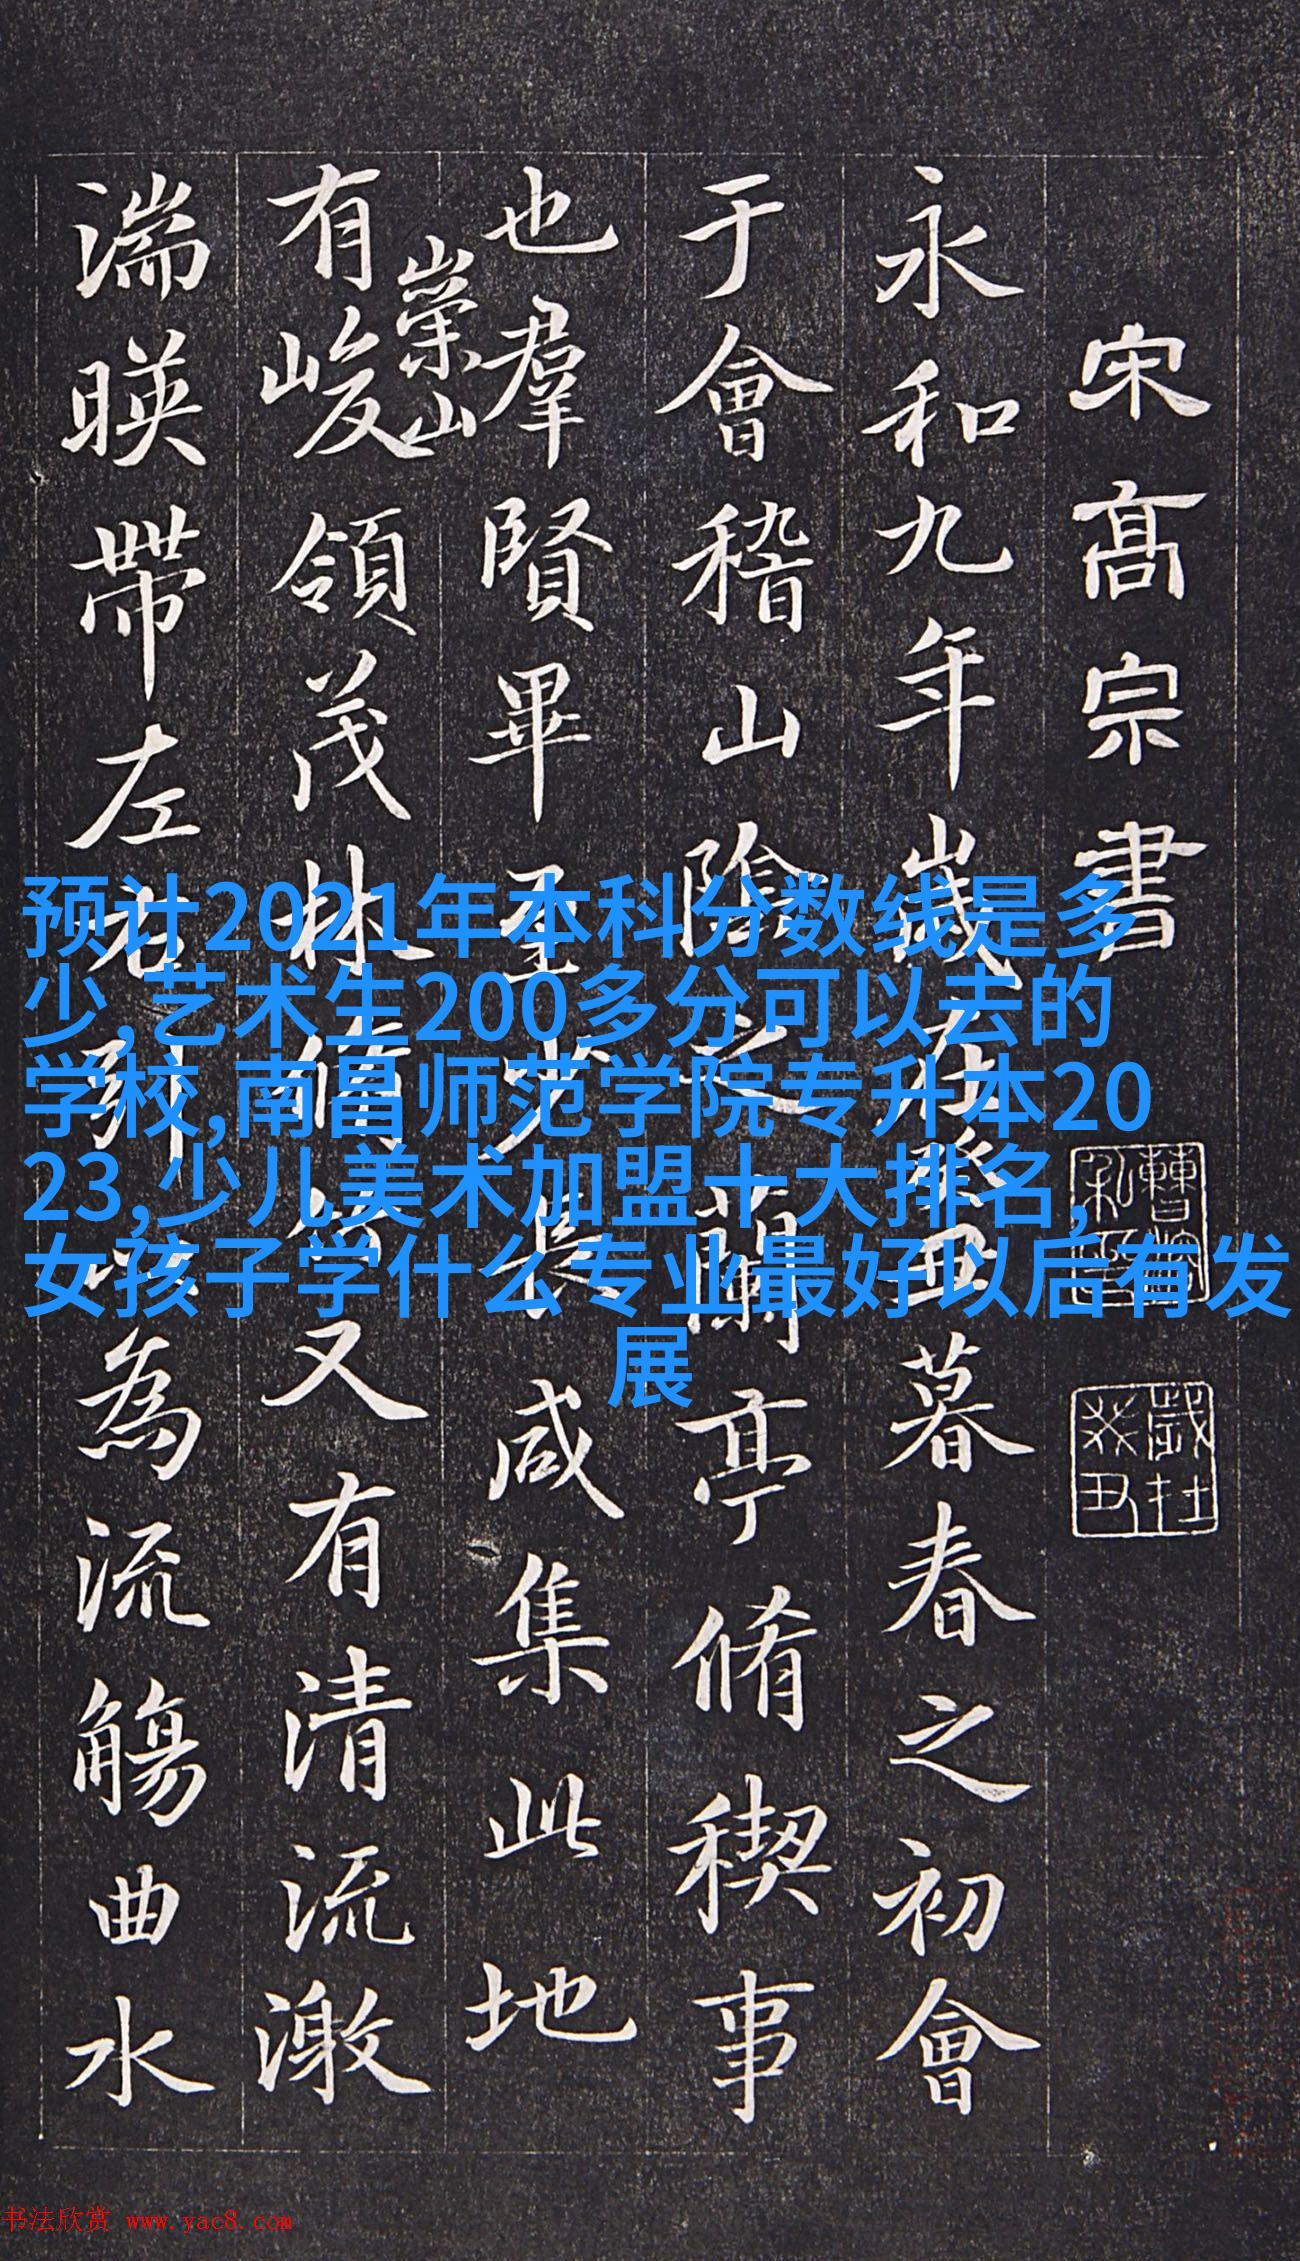 宋高宗書
永和九年歲在癸丑暮春之初會
于會稽山陰之蘭亭脩稧事
也羣賢畢至少長咸集此地
有崇山峻領茂林脩竹又有清流激
湍暎帶左右引以為流觴曲水
歲在癸丑
预计2021年本科分数线是多
少,艺术生200多分可以去的
学校,南昌师范学院专升本20
23,少儿美术加盟十大排名,
女孩子学什么专业最好以后有发
展
书法欣赏 www.yac8.com